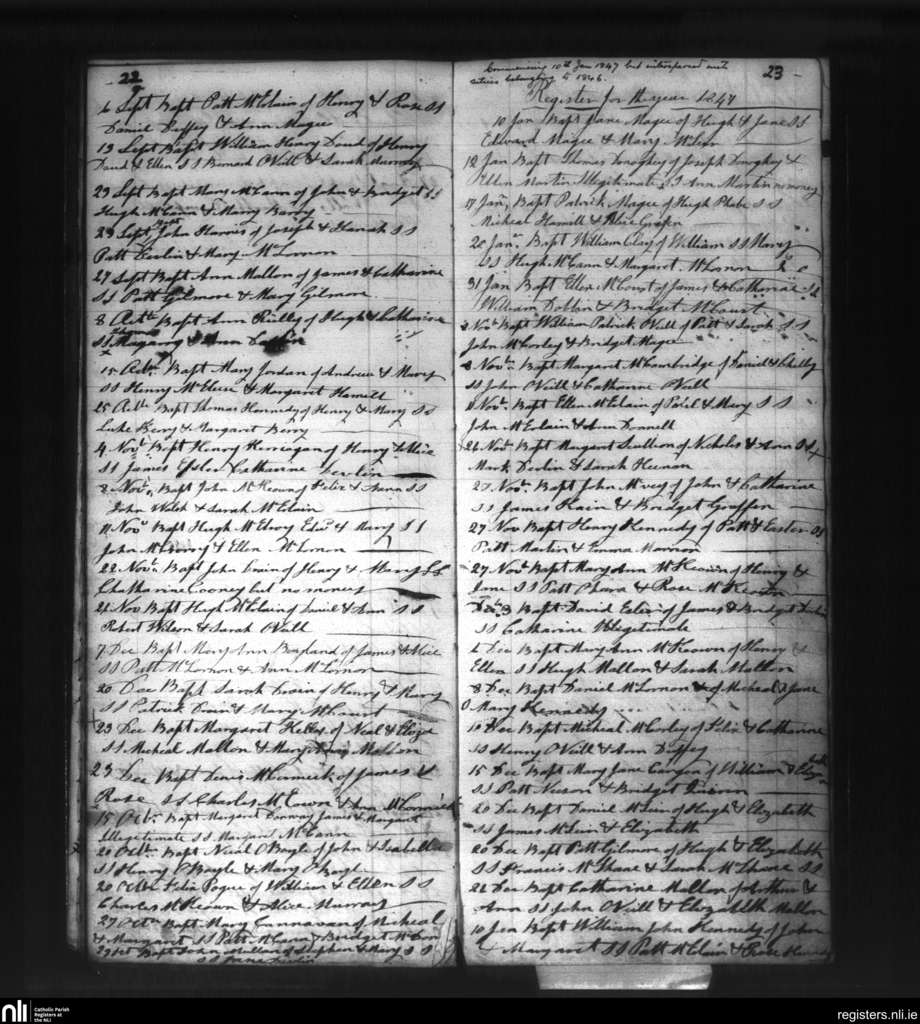 22
6 Sept Bapt Patt McClain of Henry & Rose SS
Daniel Duffey & Ann Magee
13 Sept Bapt William Henry Doud of Henry
Doud & Ellen SS Bernard ONeill & Sarah Murray
23 Sept Bapt Mary McCann of John & Bridget SS
Hugh McCann & Marry Barry
23 Sept Bapt John Harries of Joseph & Hanah SS
Patt Devlin & Mary McLornon
27 Sept Bapt Ann Mallon of James & Catharine
SS Patt Gilmore & Mary Gilmore
8 Octbr Bapt Ann Reilley of Hugh & Catharine
SS Magarry & Ann
15 Octbr Bapt Mary Jordan of Andrew & Mary
SS Henry McElree & Margaret Hamell
25 Octbr Bapt Thomas Kennedy of Henry & Mary SS
Luke Berry & Margaret Berry
4 Novr Bapt Henry Kerriagan of Henry & Alice
SS James Catharine Devlin
2 Novr Bapt John McKeown of Felix & Anna SS
John Welsh & Sarah McClain
11 Novr Bapt Hugh McElroy Edwd & Mary SS
John McIlroy & Ellen McLornon
22 Novr Bapt John Crain of Henry & Mary SS
Chatharine Cooney but no money
24 Nov Bapt Hugh McClain of Daniel & Ann SS
Robert Wilson & Sarah ONeill
7 Dec Bapt Mary Ann Boyland of James & Alice
SS Patt McLornon & Ann McLornon
20 Dec Bapt Sarah Devin of Henry & Mary
SS Patrick Devin & Mary McCourt
23 Dec Bapt Margaret Kelley of Neal & Eliza
SS Micheal Mallon & Mary Mallon
23 Dec Bapt Denis McCormick of James &
Rose SS Charles McCown & Ann McCormick
15 Octbr Bapt Margaret Conway James & Margaret
Illegitimate SS Margaret McCann
20 Octbr Bapt Niecil OBoyle of John & Isabella
SS Henry OBoyle & Mary OBoyle
20 Octbr Felix Pogue of William & Ellen SS
Charles McKeown & Alice Murray
27 Octbr Bapt Mary Cannavan of Micheal
& Margaret SS Patt McCann & Bridget McCann
29 Oct Bapt John of Stephen & Mary SS
SS Jane Devlin
Commencing 10th Jan 1847 but interspersed with
entries belonging to 1846.
23
Register for the year 1847
10 Jan Bapt Jane Magee of Hugh & Jane SS
Edward Magee & Mary McLean
12 Jan Bapt Thomas Doughey of Joseph Doughey &
Ellen Martin Illegitimate SS Ann Martin no money
17 Jany Bapt Patrick Magee of Hugh Phebe SS
Micheal Hamill & Alice
25 Jany Bapt William Clay of William SS Mary
SS Hugh McCann & Margaret McLornon
31 Jan Bapt Ellen McCourt of James & Catharine SS
William Dobbin & Bridget McCourt
2 Novr Bapt William Patrick ONeill of Patt & Sarah SS
John McCorley & Bridget Magee
2 Novr Bapt Margaret McCambridge of Daniel & Shelly
SS John ONeill & Catharine ONeill
11 Novr Bapt Ellen McClain of Phiel & Mary SS
John McErlain & Ann Donnell
24 Novr Bapt Margaret Scullion of Nicholas & Ann SS
Mark Devlin & Sarah Heenan
25 Novr Bapt John Mcvey of John & Catharine
SS James Kain & Bridget Graffin
27 Nov Bapt Henry Kennedy of Patt & Easter SS
Patt Martin & Emma Mannon
27 Novr Bapt Mary Ann McKeown of Henry &
Jane SS Patt Ohara & Rose McKeown
Decr 3 Bapt David Ester of James & Bridget
SS Catharine Illegetimate
6 Dec Bapt Mary Ann McKeown of Henry &
Ellen SS Hugh Mallon & Sarah Mallon
8 Dec Bapt Daniel McLornon & of Micheal & Jane
O Mary Kennedy
10 Dec Bapt Micheal McCorley of Felix & Catharine
SS Henry ONeill & Ann Duffey
15 Dec Bapt Mary Jane Cargon of William & Eliza
SS Patt Neeson & Bridget Quinn
20 Dec Bapt Daniel McLain of Hugh & Elizabeth
SS James McLain & Elizabeth
20 Dec Bapt Patt Gilmore of Hugh & Elizabeth
SS Francis McShane & Sarah McShane SS
22 Dec Bapt Catharine Mallon of Arthur &
Ann SS John ONeill & Elizabeth Mallon
10 Jan Bapt William John Kennedy of John
& Margaret SS Patt McClain & Rose Kennedy
nli Catholic Parish
Registers at
the NLI
registers.nli.ie